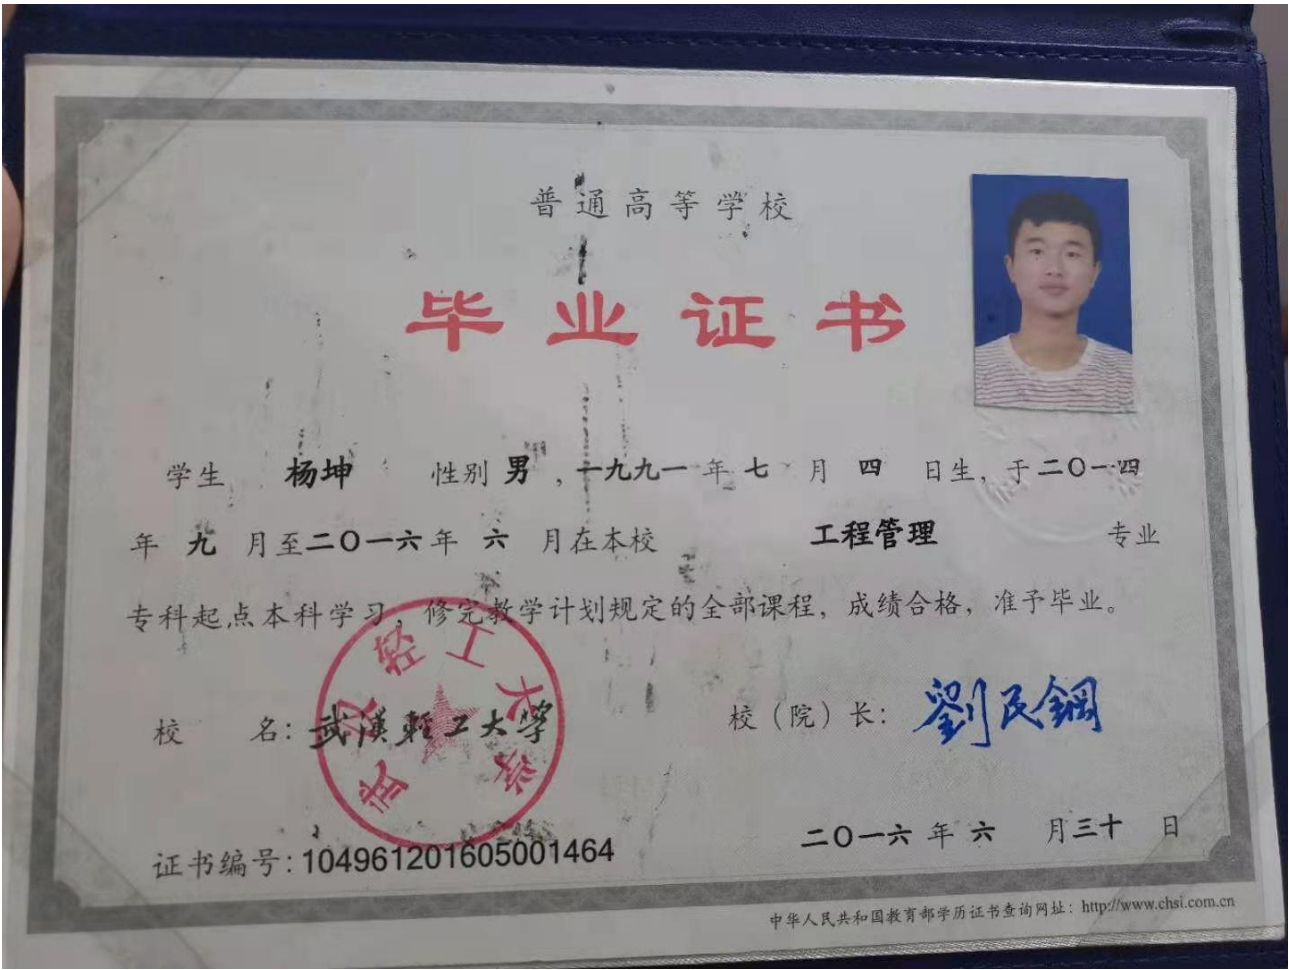 普通高等学校
毕业证书
学生 杨坤 性别 男 ,一九九一年 七 月 四 日生,于二〇一四
年 九 月至二〇一六年 六 月在本校 工程管理 专业
专科起点本科学习,修完教学计划规定的全部课程,成绩合格,准予毕业。
武汉轻工大学
校 名:武漢輕工大學
校(院)长:劉民鋼
二〇一六年 六 月三十 日
证书编号:104961201605001464
中华人民共和国教育部学历证书查询网址:http://www.chsi.com.cn